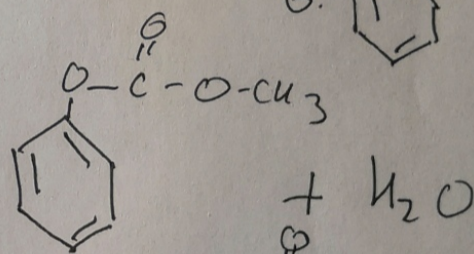 O
O
O-C-O-CH3
+ H2O
O